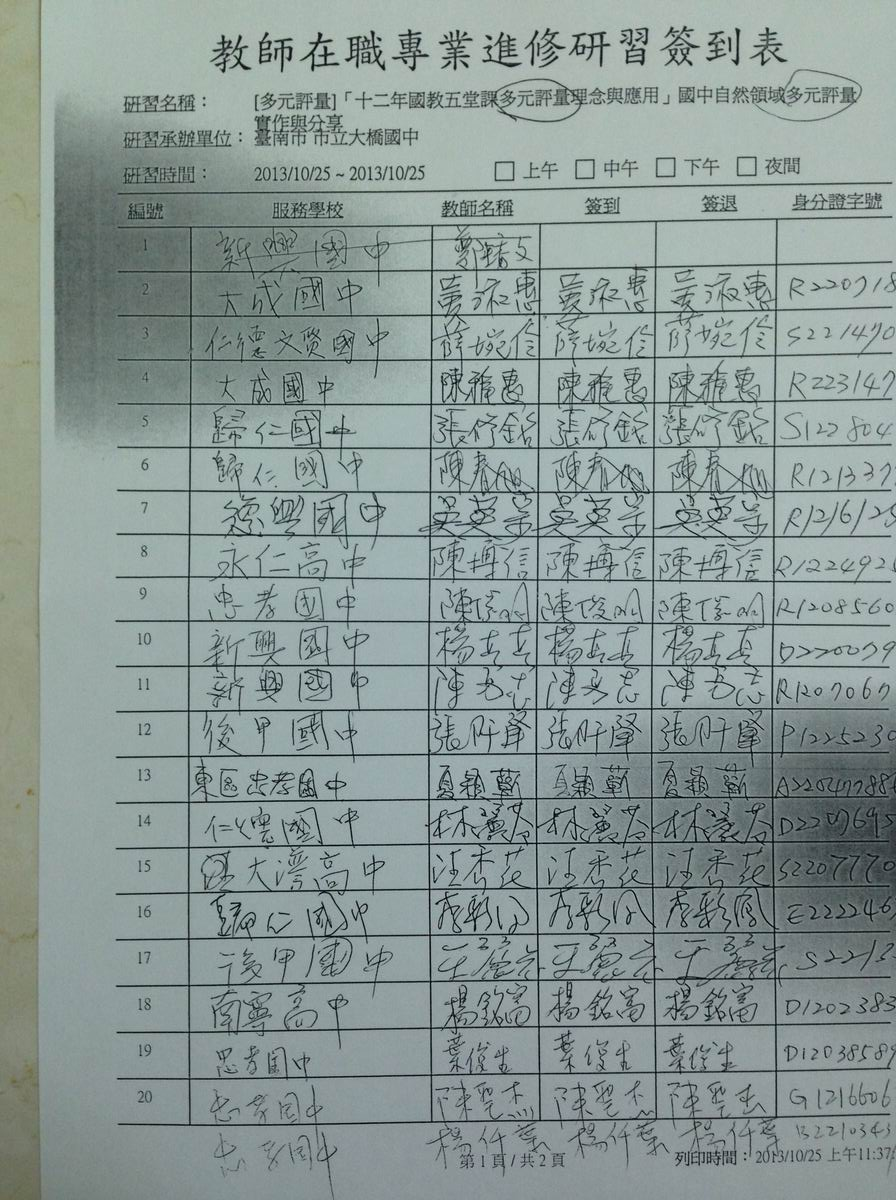 教師在職專業進修研習簽到表
研習名稱： [多元評量]「十二年國教五堂課多元評量理念與應用」國中自然領域多元評量
實作與分享
研習承辦單位： 臺南市 市立大橋國中
研習時間： 2013/10/25 ~ 2013/10/25 □上午 □中午 □下午 □夜間
編號 服務學校 教師名稱 簽到 簽退 身分證字號
1 新興國中
2 大成國中 黃淑惠 黃淑惠 黃淑惠 R220718
3 仁德文賢國中 薛婉伶 薛婉伶 薛婉伶 S221470
4 大成國中 陳雅惠 陳雅惠 陳雅惠 R223147
5 歸仁國中 S122804
6 歸仁國中 R121337
7 德興國中 R121612
8 永仁高中 陳博信 陳博信 陳博信 R122492
9 忠孝國中 陳俊明 陳俊明 陳俊明 R1208560
10 新興國中 D220079
11 新興國中 R107067
12 後甲國中 P1225230
13 東區忠孝國中 夏穎蘄 夏穎蘄 夏穎蘄
14 仁德國中
15 大灣高中 汪杏花 汪杏花 汪杏花 S2207770
16 歸仁國中 李彩鳳 李彩鳳 李彩鳳 E222246
17 後甲國中
18 南寧高中 楊銘富 楊銘富 楊銘富 D1202383
19 忠孝國中 葉俊生 葉俊生 葉俊生 D12038589
20 忠孝國中 陳聖杰 陳聖杰 陳聖杰 G1216606
忠孝國中 楊仟葉 楊仟葉 楊仟葉 B2210343
第 1 頁 / 共 2 頁 列印時間： 2013/10/25 上午11:37: